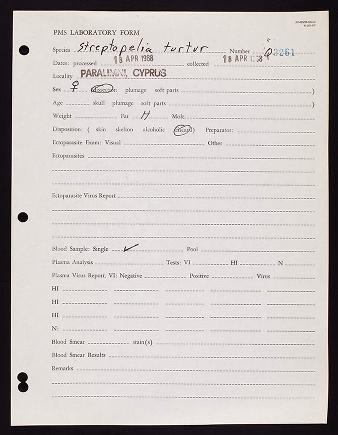 PMS LABORATORY FORM
Species Streptopelia turtur Number Q 3261
Dates: processed 18 APR 1968 collected 18 APR
Locality PARALIMNI, CYPRUS
Sex ♀ (dissection plumage soft parts )
Age ( skull plumage soft parts )
Weight Fat H Molt
Disposition: ( skin skeleton alcoholic discard) Preparator:
Ectoparasite Exam: Visual Other
Ectoparasites
Ectoparasite Virus Report
Blood Sample: Single ✓ Pool
Plasma Analysis Tests: VI HI N
Plasma Virus Report, VI: Negative Positive Virus
HI
HI
HI
N:
Blood Smear stain(s)
Blood Smear Results
Remarks